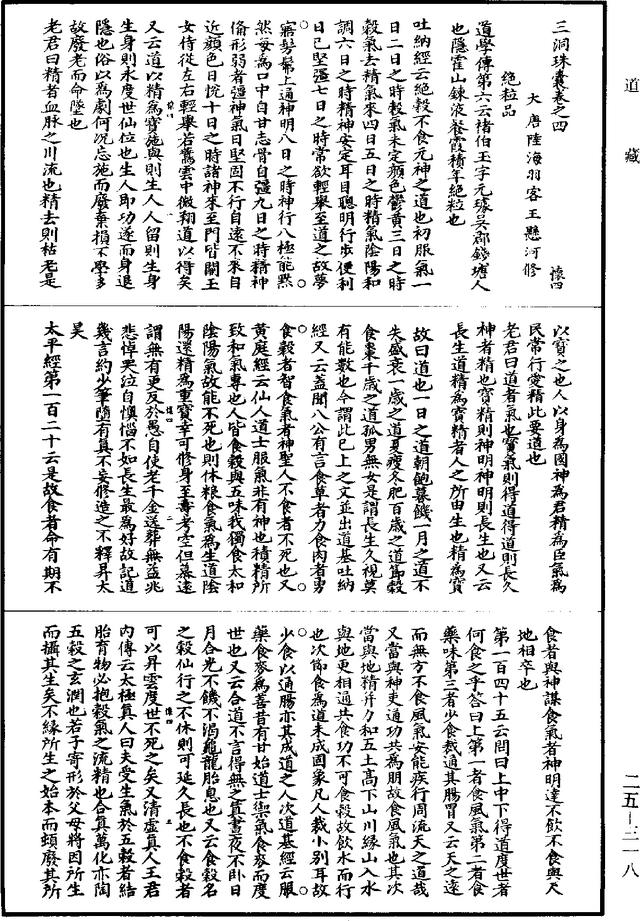 道藏
三洞珠囊卷之四　懷四
大唐陸海羽客王懸河修
絕粒品
道學傳第六云褚伯玉字元璩吳郡錢塘人
也隱霍山鍊液餐霞積年絕粒也
吐納經云絕穀不食元神之道也初服氣一
日二日之時穀氣未定顏色鬱黃三日之時
穀氣去精氣來四日五日之時精氣陰陽和
調六日之時精神安定耳目聰明行步便利
日已堅彊七日之時常欲輕舉至道之故夢
寤髣髴上通神明八日之時神行八極能默
然每為口中自甘志骨自彊九日之時精神
俻形弱者彊神氣日堅固不行自遠不來自
近顏色日悅十日之時諸神來至門皆闢玉
女侍從左右輕舉若鸞雲中微翔道以得矣
又云道以精為寶施與則生人人留則生身
生身則永度世仙位也生人即功遂而身退
隱也俗以為劇何況忘施而廢棄損不學多
故廢老而命墜也
老君曰精者血脉之川流也精去則枯老是
以寶之也人以身為國神為君精為臣氣為
民常行愛精此要道也
老君曰道者氣也寶氣則得道得道則長久
神者精也寶精則神明神明則長生也又云
長生道精為寶精者人之所由生也精為寶
故曰道也一日之道朝飽暮饑一月之道不
失盛衰一歲之道夏瘦冬肥百歲之道節穀
食棗千歲之道孤男無女是謂長生久視莫
有能數也今謂此已上之文並出道基吐納
經又云蓋聞八公有言食草者力食肉者勇
食穀者智食氣者神聖人不食者不死也又
黃庭經云仙人道士服氣非有神也積精所
致和氣專也人皆食穀與五味我獨食太和
陰陽氣故能不死也則休粮食氣為生道陰
陽還精為重寶幸可修身至壽考空但慕遠
謂無有更反於愚自使老千金送葬無益兆
悲悼哭泣自懊惱不如長生最為好故記道
幾言約少筆隨有真不妄修造之不釋昇太
昊
太平經第一百二十云是故食者命有期不
食者與神謀食氣者神明達不飲不食與天
地相卒也
第一百四十五云問曰上中下得道度世者
何食之乎答曰上第一者食風氣第二者食
藥味第三者少食裁通其腸胃又云天之遠
而無方不食風氣安能疾行周流天之道哉
又當與神吏通功共為朋故食風氣也其次
當與地精并力和五土高下山川緣山入水
與地更相通共食功不可食穀故飲水而行
也次節食為道未成固象凡人裁小別耳故
少食以通腸亦其成道之人次道基經云服
藥食麥為善昔有甘始道士御氣食麥而度
世也又云合道不言得無之真晝夜不卧日
月合光不饑不渴龜龍胎息也又云食穀名
之穀仙行之不休則可延久長也不食穀者
可以昇雲度世不死之矣又清虛真人王君
內傳云太極真人曰夫受生氣於五穀者結
胎育物必抱穀氣之流精也合真萬化亦陶
五穀之玄潤也若子寄形於父母將因所生
而攝其生矣不緣所生之始本而頓廢其所
二五—三一八